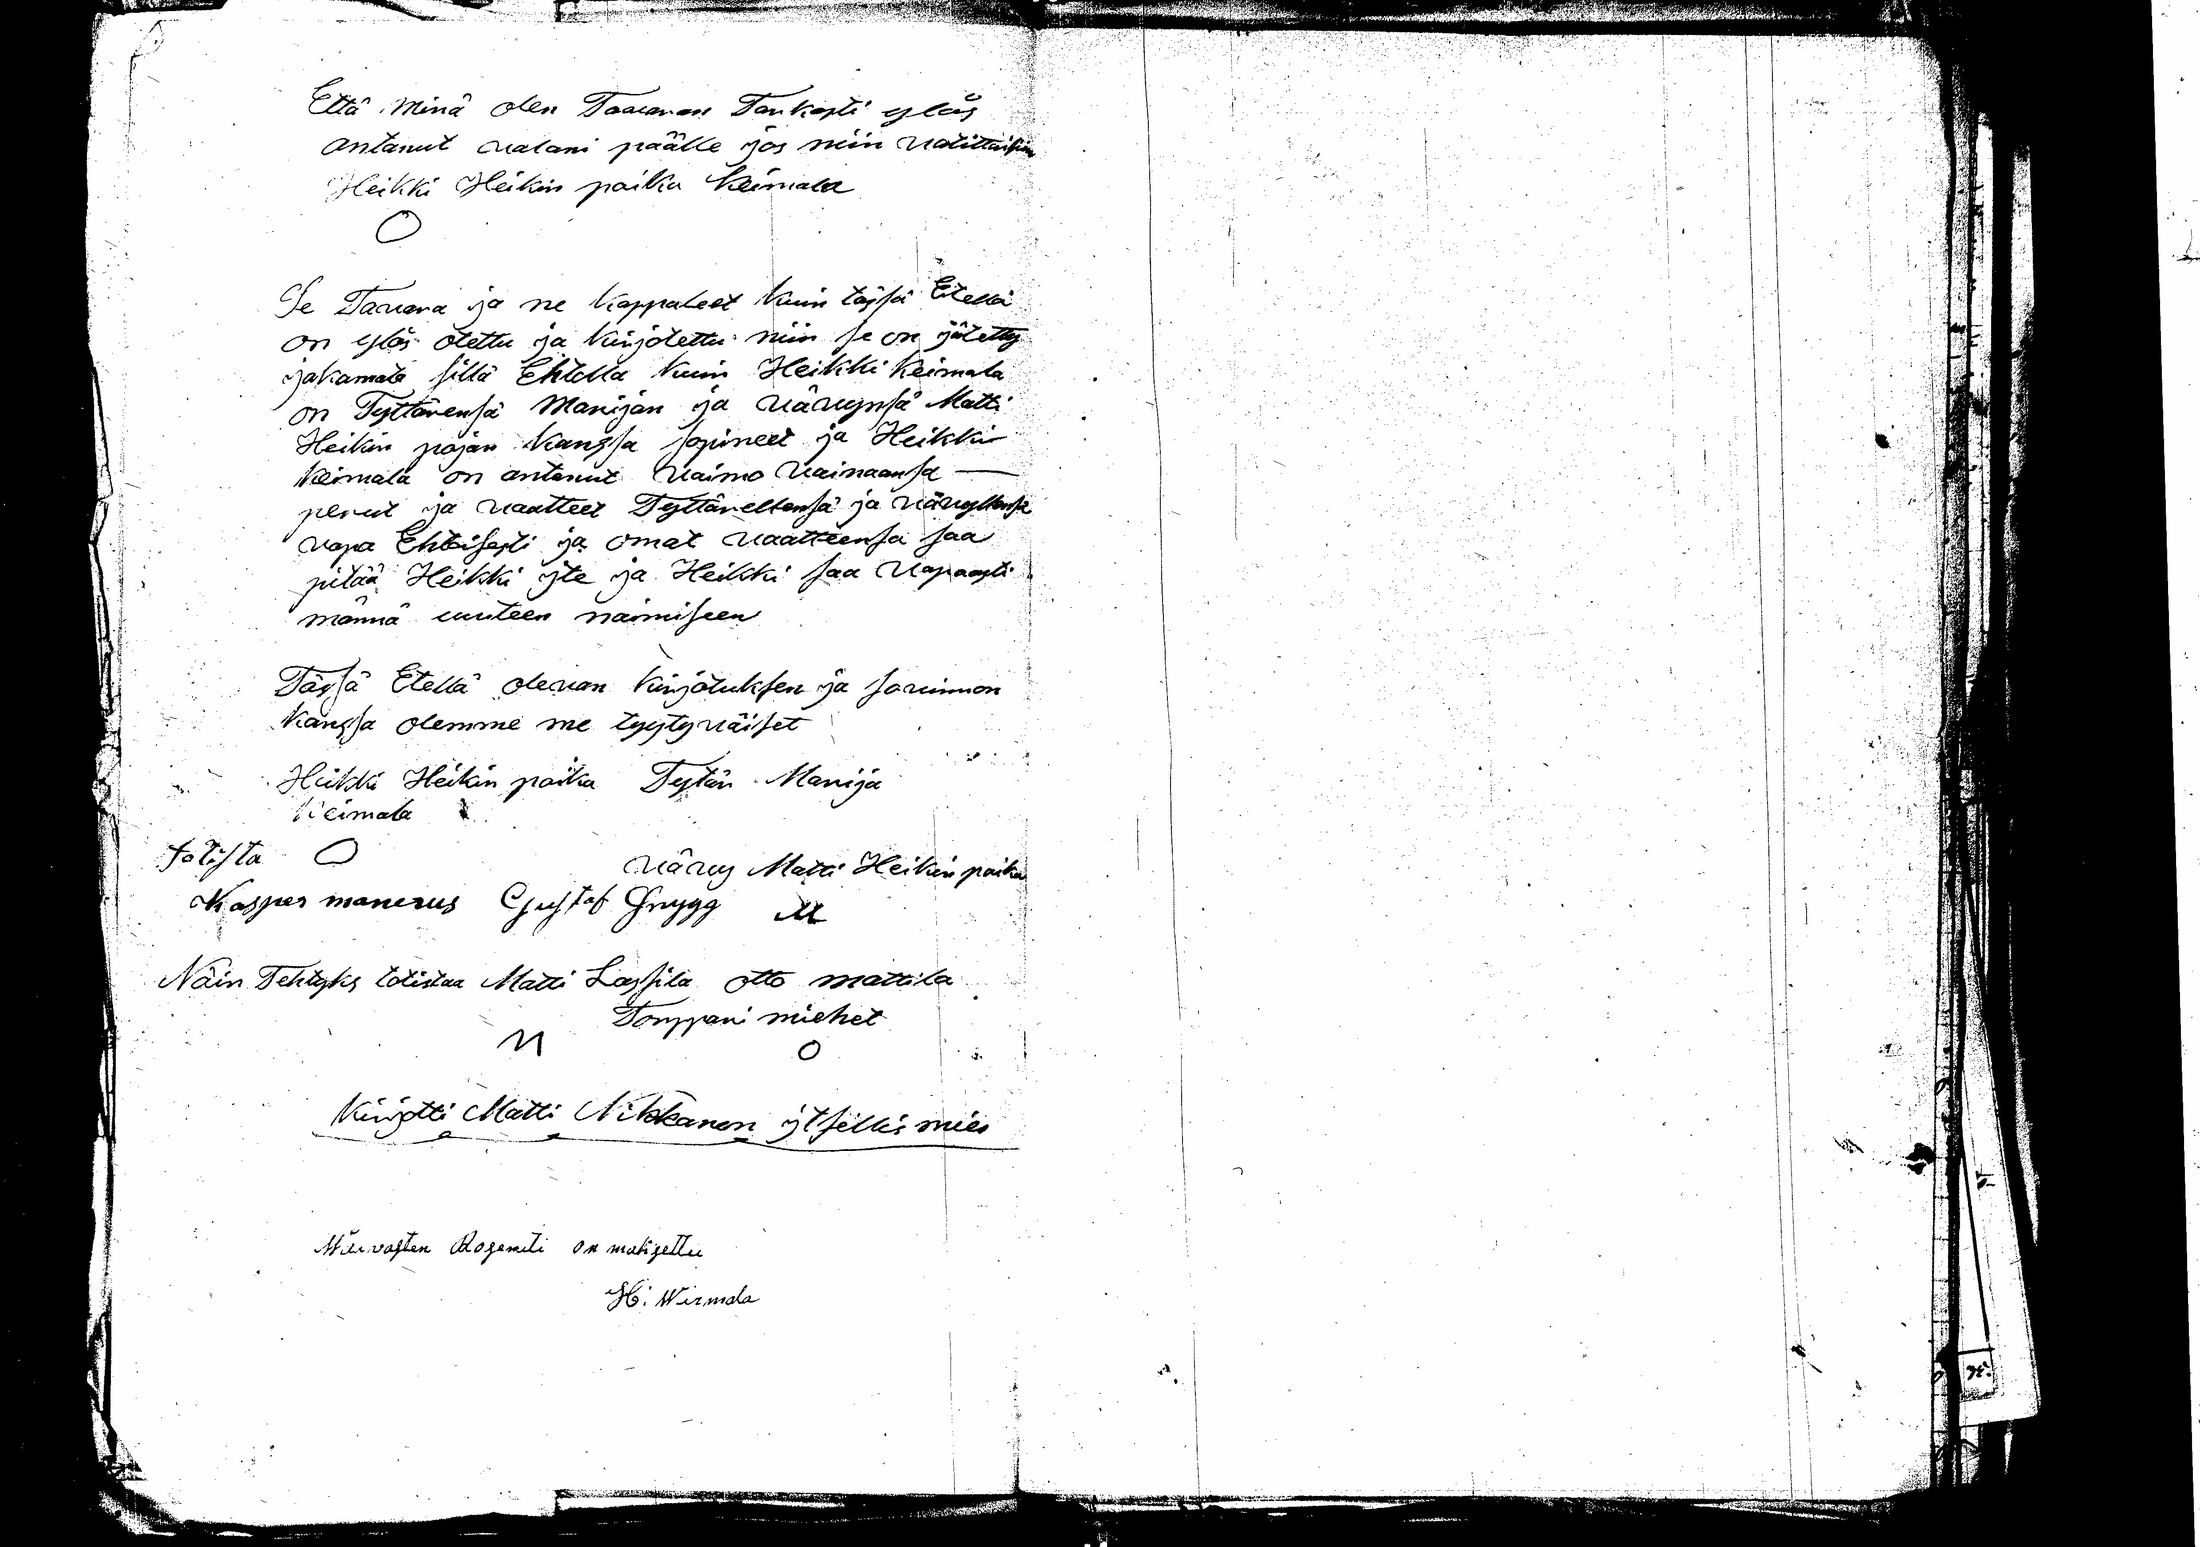 Että Minä olen Taavaran Tarkasti ylös
antanut valani päälle jos niin vaadittaisiin
Heikki Heikin poika Keimala
O
Se Tavara ja ne Kappaleet Kuin tässä Etellä
on ylös otettu ja kirjotettu niin se on jätetty
jakamata sillä Ehtolla kuin Heikki Keimala
on Tyttärensä Marijan ja vävynsä Matti
Heikin pojan kanssa sopineet ja Heikki
Keimala on antanut vaimo vainaansa
perut ja vaatteet Tyttärellensä ja vävyllensä
vapa Ehtoisesti ja omat vaatteensa saa
pitää Heikki jte ja Heikki saa vapaasti
männä uuteen naimiseen
Tässä Etellä olevan kirjotuksen ja sovinnon
kanssa olemme me tyytyväiset
Heikki Heikin poika Tytär Marija
Keimala
totista O
vävy Matti Heikin poika
Kasper manerus Gustaf Snygg M
Näin Tehtyks totistaa Matti Lassila otto mattila
Torppari miehet
M O
Kirjotti Matti Nikkanen jtsellis mies
on maksettu
H. Wirmala